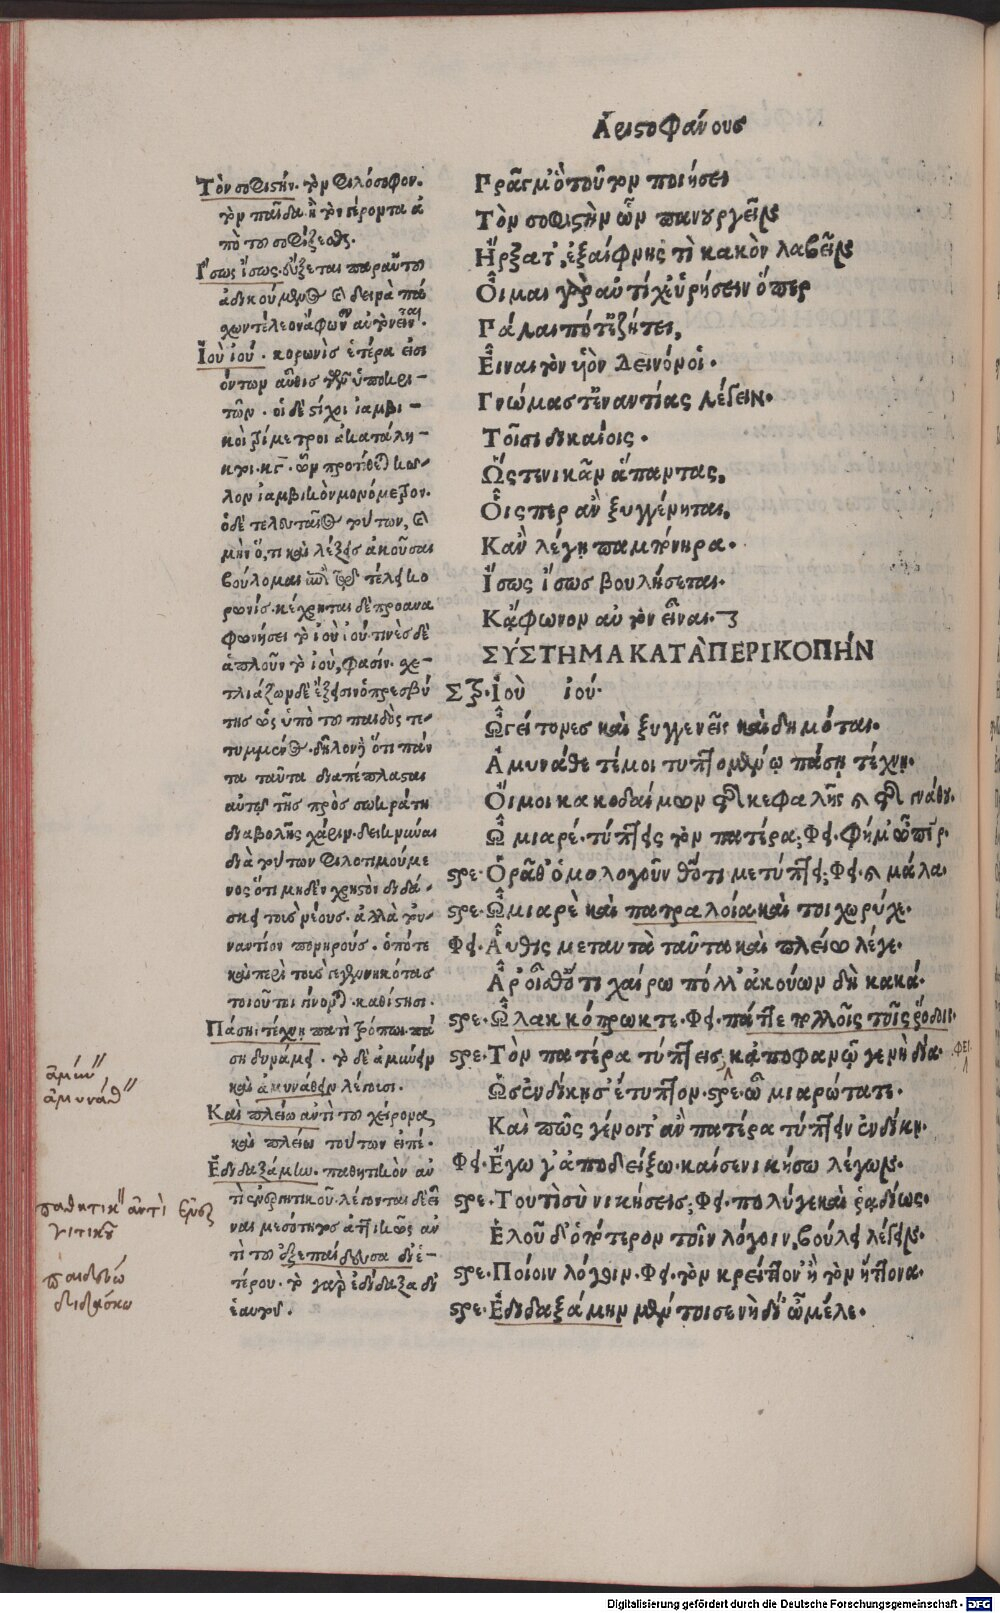 Ἀριστοφάνους
Τὸν σοφιστὴν. τὸν φιλόσοφον.
τὸν παῖδα ἢ τὸν γέροντα ἀ
πὸ τοῦ σοφίζεσθαι.
Ἴσως ἴσως. εὔξεται παρ' αὐτοῦ
ἀδικούμενος καὶ δεινὰ πά
σχων τέλεον ἄφωνον αὐτὸν εἶναι.
Ἰοὺ ἰού. κορωνὶς ἑτέρα εἰσι
όντων αὖθις τῶν ὑποκρι–
τῶν. οἱ δὲ στίχοι ἰαμβι–
κοὶ τρίμετροι ἀκατάλη–
κτοι. ὧν προτίθεται κῶ–
λον ἰαμβικὸν μονόμετρον.
ὁ δὲ τελευταῖος τούτων, καὶ
μὴν ὅ,τι καὶ λέξεις ἀκοῦσαι
βούλομαι ἐπὶ τῷ τέλει κο
ρωνίς. κέχρηται δὲ προανα
φωνήσει τὸ ἰοὺ ἰού. τινὲς δὲ
ἁπλοῦν τὸ ἰού, φασίν. σχε–
τλιάζων δὲ ἔξεισιν ὁ πρεσβύ
της ὡς ὑπὸ τοῦ παιδὸς τυ–
πτόμενος. δηλονότι ὅτι πάν
τα ταῦτα διαπέπλασται
αὐτῷ τῆς πρὸς σωκράτη
διαβολῆς χάριν. δεικνύναι
διὰ τούτων φιλοτιμούμε
νος ὅτι μηδὲν χρηστὸν διδά–
σκει τοὺς νέους. ἀλλὰ τοὐ–
ναντίον πονηρούς. ὁπότε
καὶ περὶ τοὺς γεγεννηκότας
τοιοῦτοι καθίστησι.
Πάσῃ τέχνῃ παντὶ τρόπῳ. πά
σῃ δυνάμει. τὸ δὲ ἀμύνειν
καὶ ἀμυνάθειν λέγουσι.
Καὶ πλείω ἀντὶ τοῦ χείρονας
καὶ πλείω τούτων εἰπέ.
Ἐδιδαξάμην. παθητικὸν ἀν
τὶ ἐνεργητικοῦ. λέγονται δὲ εἶ
ναι μεσότητος ἀττικῶς ἀν
τὶ τοῦ ἐξεπαίδευσα δι' ἑ–
τέρου. τὸ γὰρ ἐδίδαξα δι'
ἑαυτοῦ.
ἀμύν
ἀμυνάθ
παθητικ ἀντὶ ἐνερ
γιτικοῦ
παιδεύω
διδάσκω
Πρᾶγμ' ὃ τοῦτον ποιήσει
Τὸν σοφιστὴν ὧν πανουργεῖν
Ἤρξατ', ἐξαίφνης τὶ κακὸν λαβεῖν
Οἶμαι γὰρ αὐτίχ' εὑρήσειν ὅπερ
Πάλαι ποτ' ἐζήτει,
Εἶναι τὸν υἱὸν δεινόν οἱ.
Γνώμας τ' ἐναντίας λέγειν.
Τοῖσι δικαίοις.
Ὥστε νικᾶν ἅπαντας,
Οἷς περ ἂν ξυγγένηται,
Κἂν λέγῃ παμπόνηρα.
Ἴσως ἴσως βουλήσεται.
Κἄφωνον αὐτὸν εἶναι.
ΣΎΣΤΗΜΑ ΚΑΤᾺ ΠΕΡΙΚΟΠΉΝ
Στρ. Ἰοὺ ἰού.
Ὦ γείτονες καὶ ξυγγενεῖς καὶ δημόται.
Ἀμυνάθετέ μοι τυπτομένῳ πάσῃ τέχνῃ.
Οἴμοι κακοδαίμων τῆς κεφαλῆς καὶ τῆς γνάθου.
Ὦ μιαρέ. τύπτεις τὸν πατέρα; Φει. φήμ' ὦ πάτερ.
στρε. Ὁρᾶθ' ὁμολογοῦνθ' ὅτι με τύπτει; Φει. καὶ μάλα.
στρε. Ὦ μιαρὲ καὶ πατραλοία καὶ τοιχωρύχε.
Φει. Αὖθίς με ταυτὰ ταῦτα καὶ πλείω λέγε.
Ἆρ' οἶσθ' ὅτι χαίρω πόλλ' ἀκούων δὴ κακά.
στρε. Ὦ λακκόπρωκτε. Φει. πάττε πολλοῖς τοῖς ῥόδοις.
στρε. Τὸν πατέρα τύπτεις; κἀποφανῶ γε νὴ δία. ΦΕΙ.
Ὡς ἐν δίκῃ σ' ἔτυπτον. στρε. ὦ μιαρώτατε.
Καὶ πῶς γένοιτ' ἂν πατέρα τύπτειν ἐν δίκῃ.
Φει. Ἔγωγ' ἀποδείξω. καί σε νικήσω λέγων.
στρε. Τουτὶ σὺ νικήσεις; Φει. πολύ γε καὶ ῥαδίως.
Ἑλοῦ δ' ὁπότερον τοῖν λόγοιν, βούλει λέγειν.
στρε. Ποίοιν λόγοιν. Φει. τὸν κρείττον' ἢ τὸν ἥττονα.
στρε. Ἐδιδαξάμην μέντοι σε νὴ δί' ὦ μέλε.
Digitalisierung gefördert durch die Deutsche Forschungsgemeinschaft - DFG